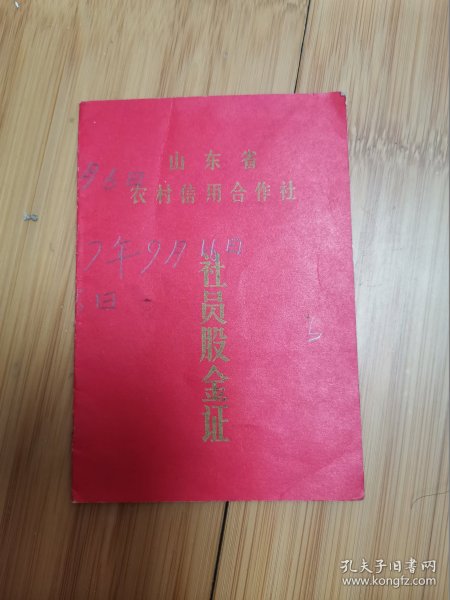 山东省
农村信用合作社
月6日
7年9月16日
日
社员股金证
孔夫子旧书网
www.kongfz.com